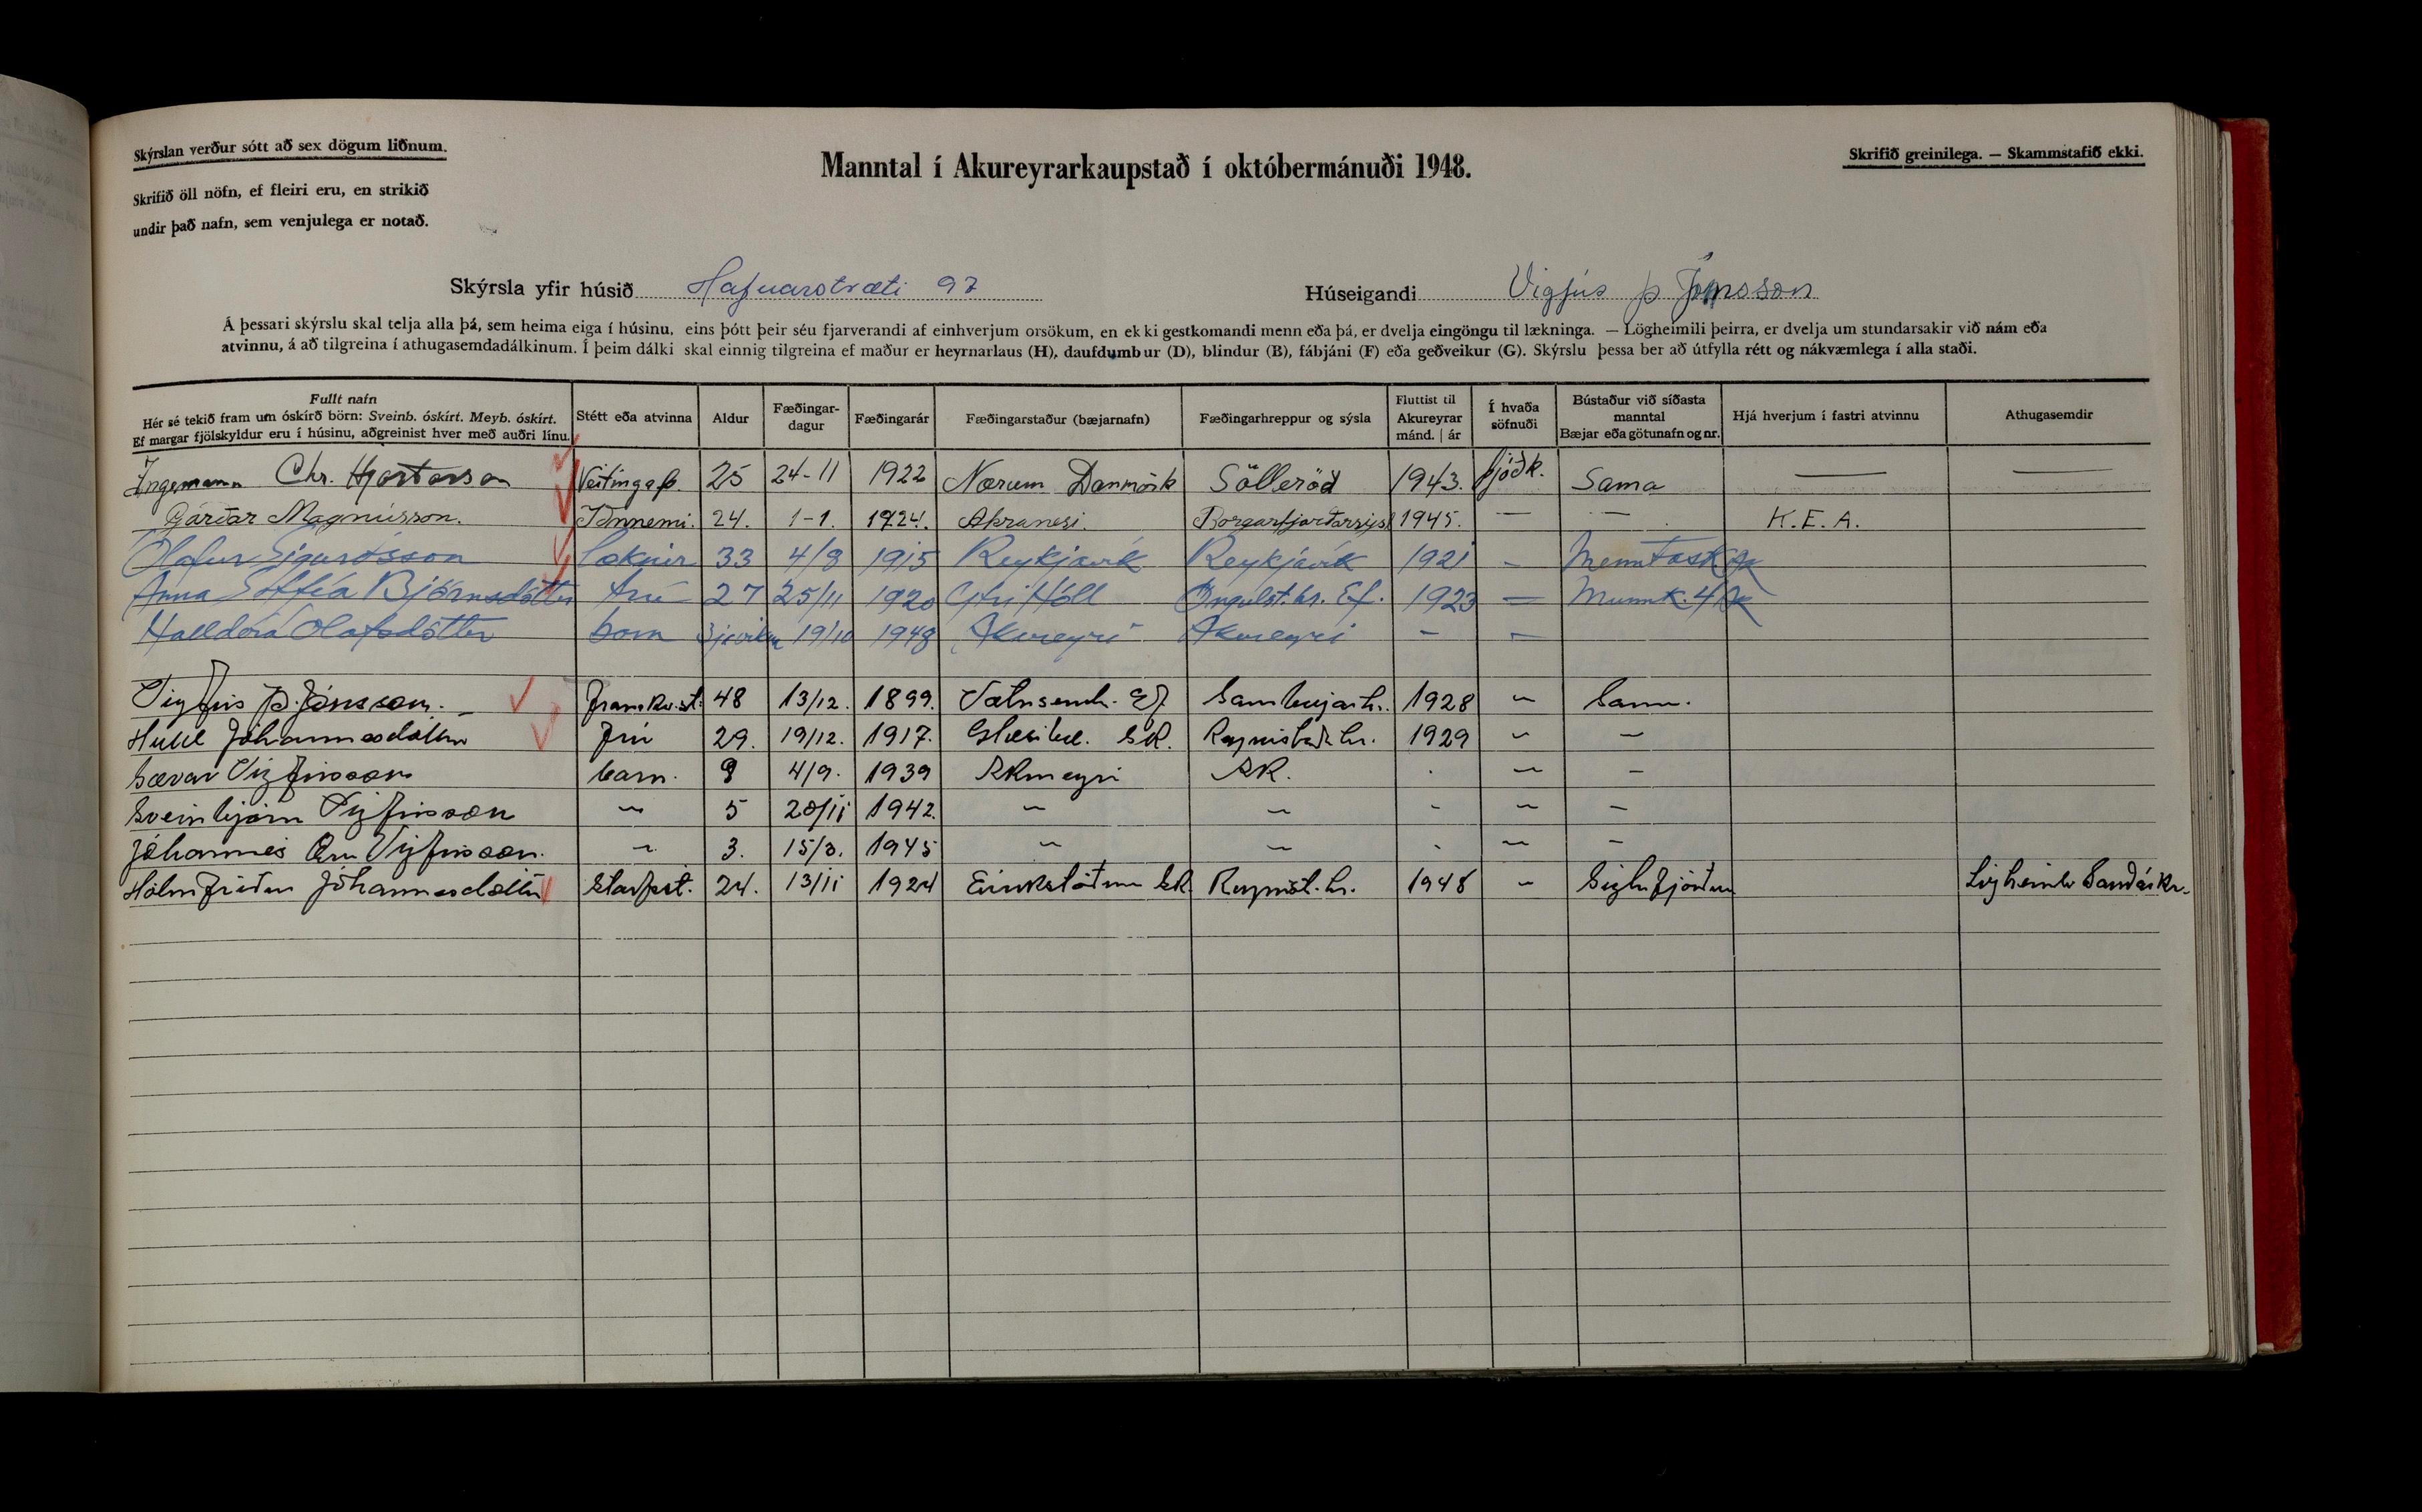 Skýrslan verður sótt að sex dögum liðnum.
Skrifið öll nöfn, ef fleiri eru, en strikið
undir það nafn, sem venjulega er notað.
Manntal í Akureyrarkaupstað í októbermánuði 1948.
Skrifið greinilega. — Skammstafið ekki.
Skýrsla yfir húsið Hafnarstræti 97 Húseigandi Vigfús Þ Jónsson
Á þessari skýrslu skal telja alla þá, sem heima eiga í húsinu, eins þótt þeir séu fjarverandi af einhverjum orsökum, en ekki gestkomandi menn eða þá, er dvelja eingöngu til lækninga. — Lögheimili þeirra, er dvelja um stundarsakir við nám eða
atvinnu, á að tilgreina í athugasemdadálkinum. Í þeim dálki skal einnig tilgreina ef maður er heyrnarlaus (H), daufdumbur (D), blindur (B), fábjáni (F) eða geðveikur (G). Skýrslu þessa ber að útfylla rétt og nákvæmlega í alla staði.
Fullt nafn
Hér sé tekið fram um óskírð börn: Sveinb. óskírt. Meyb. óskírt.
Ef margar fjölskyldur eru í húsinu, aðgreinist hver með auðri línu.
Stétt eða atvinna
Aldur
Fæðingar-
dagur
Fæðingarár
Fæðingarstaður (bæjarnafn)
Fæðingarhreppur og sýsla
Fluttist til
Akureyrar
mánd. | ár
Í hvaða
söfnuði
Bústaður við síðasta
manntal
Bæjar eða götunafn og nr.
Hjá hverjum í fastri atvinnu
Athugasemdir
Ingemann Chr. Hjortarson Veitingaþ. 25 24-11 1922 Nærum Danmörk Sölleröd 1943. Þjóðk. Sama — —
Garðar Magnússon. Iðnnemi. 24. 1-1. 1924. Akranesi. Borgarfjarðarsýsl 1945. — — K.E.A.
Olafur Sigurðsson læknir 33 4/8 1915 Reykjavík Reykjavík 1921 - Menntask Ak
Anna Soffía Björnsdóttir frú 27 25/11 1920 Öngulst.hr. Ef. 1923 — Munnk. 4 Ak
Halldóra Olafsdóttir barn 19/10 1948 Akureyri Akureyri — —
Vigfús Þ. Jónsson. Framkv.st. 48 13/12. 1899. Ef Saurbæjarh. 1928 〃 Sama.
Huld Jóhannesdóttir frú 29. 19/12. 1917. Glæsibæ. SK. Reynistaðahr. 1929 〃 —
Sævar Vigfússon barn. 9 4/9. 1939 Akureyri AK. - 〃 —
Sveinbjörn Vigfússon 〃 5 20/11 1942. 〃 〃 - 〃 —
Jóhannes Örn Vigfússon. 〃 3. 15/3. 1945 〃 〃 - 〃 —
Hólmfríður Jóhannesdóttir Starfsst. 24. 13/11 1924 SK Reynist.hr. 1948 〃 Siglufjörður Lögheimili Sauðárkr.